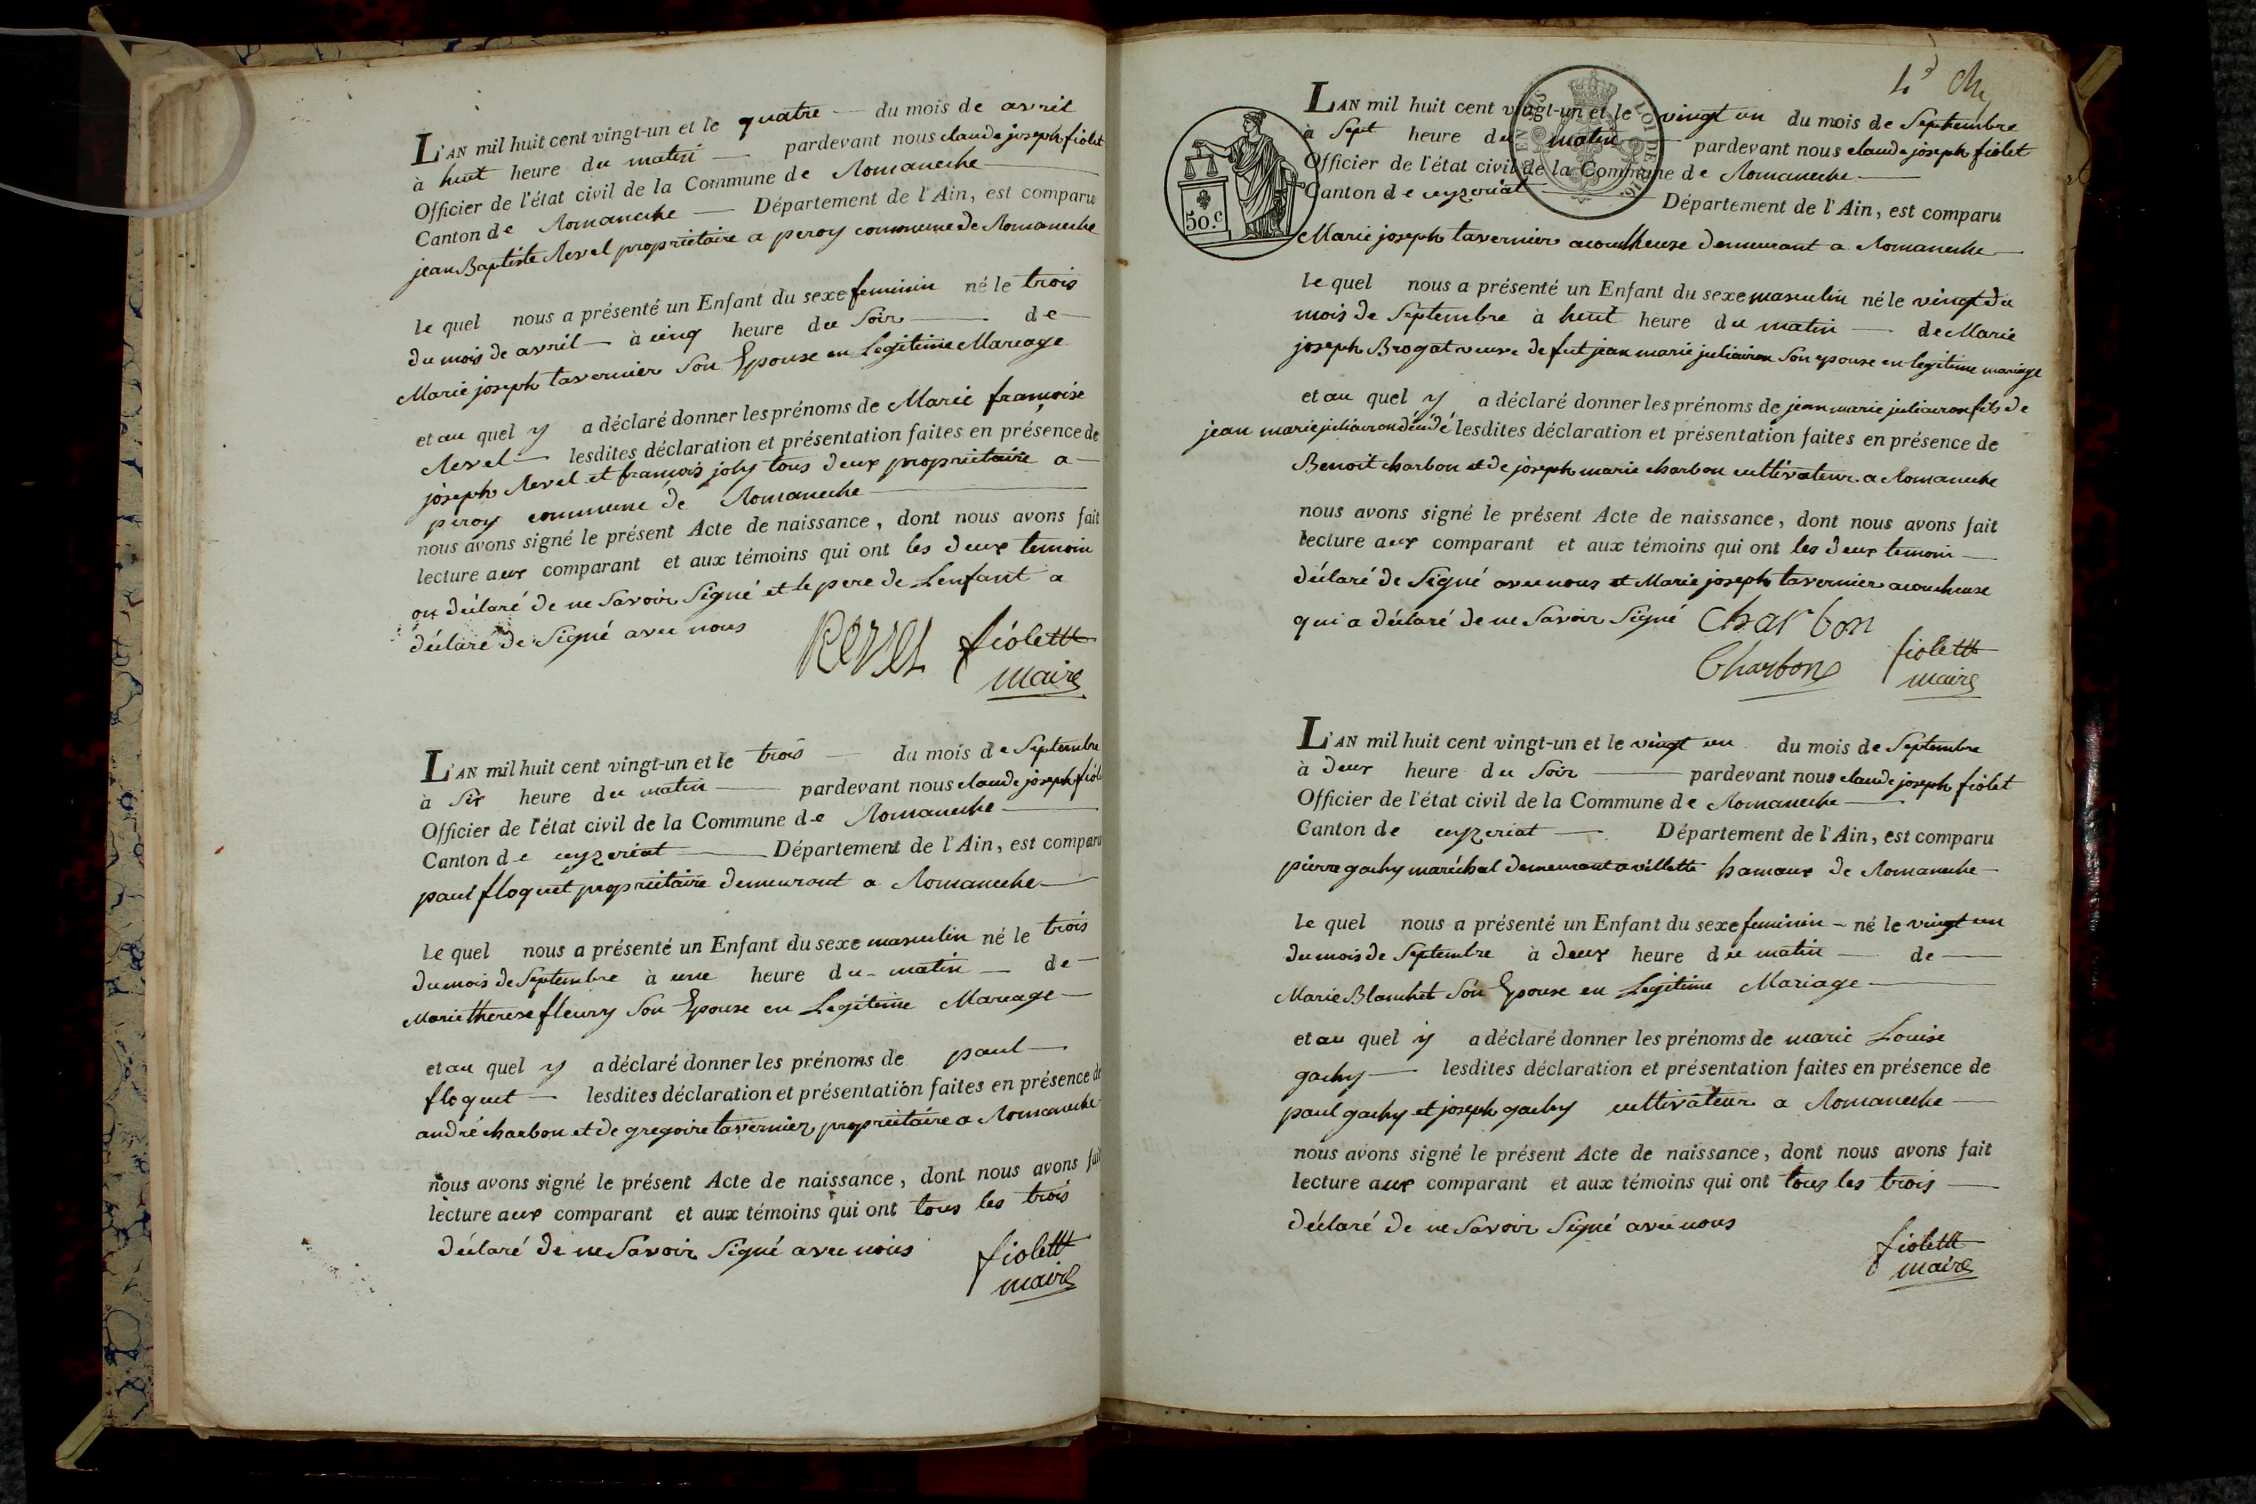 L'AN mil huit cent vingt-un et le quatre — du mois de avril
à huit heure du matin — pardevant nous claude joseph fiolet
Officier de l'état civil de la Commune de Romaneche —
Canton de Romaneche — Département de l'Ain, est comparu
jean Baptiste Revel proprietaire a peroy commune de Romaneche
le quel nous a présenté un Enfant du sexe feminin né le trois
du mois de avril — à cinq heure du Soir — de —
Marie joseph tavernier Son Epouse en Legitime Mareage
et au quel y a déclaré donner les prénoms de Marie françoise
Revel — lesdites déclaration et présentation faites en présence de
joseph Revel et francois joly tous deux proprietaire a —
peroy commune de Romaneche —
nous avons signé le présent Acte de naissance, dont nous avons fait
lecture aux comparant et aux témoins qui ont les deux temoin
on déclaré de ne Savoir Signé et le pere de Lenfant a
déclaré de Signé avec nous
Revel fiolett
maire
L'AN mil huit cent vingt-un et le trois — du mois de Septembre
à Six heure du matin — pardevant nous claude joseph fiol
Officier de l'état civil de la Commune de Romaneche —
Canton de ceyzeriat — Département de l'Ain, est comparu
paul floquet proprietaire demeurant a Romaneche —
le quel nous a présenté un Enfant du sexe masculin né le trois
du mois de Septembre à une heure du matin — de —
Marie therese fleury Son Epouse en Legitime Mareage —
et au quel y a déclaré donner les prénoms de paul —
floquet — lesdites déclaration et présentation faites en présence de
andré charbon et de gregoire tavernier proprietaire a Romaneche
nous avons signé le présent Acte de naissance, dont nous avons fait
lecture aux comparant et aux témoins qui ont tous les trois
déclaré de ne Savoir Signé avec nous
fiolett
maire
50.c
L'AN mil huit cent vingt-un et le vingt un du mois de Septembre
à Sept heure du matin — pardevant nous claude joseph fiolet
Officier de l'état civil de la Commune de Romaneche —
Canton de ceyzeriat — Département de l'Ain, est comparu
Marie joseph tavernier acoucheuse demeurant a Romaneche —
le quel nous a présenté un Enfant du sexe masculin né le vingt du
mois de Septembre à huit heure du matin — de Marie
joseph Brogat veuve de fut jean marie juliairon Son epouse en legitime mariage
et au quel y a déclaré donner les prénoms de jean marie juliairon fils de
jean marie juliairon décédé lesdites déclaration et présentation faites en présence de
Benoit charbon et de joseph marie charbon cultivateur a Romaneche
nous avons signé le présent Acte de naissance, dont nous avons fait
lecture aux comparant et aux témoins qui ont les deux temoin —
déclaré de Signé avec nous et Marie joseph tavernier acoucheuse
qui a déclaré de ne Savoir Signé Charbon
Charbon fiolett
maire
L'AN mil huit cent vingt-un et le vingt un du mois de Septembre
à deux heure du Soir — pardevant nous claude joseph fiolet
Officier de l'état civil de la Commune de Romaneche —
Canton de ceyzeriat — Département de l'Ain, est comparu
pierre gachy maréchal demeurant a villette hamaux de Romaneche —
le quel nous a présenté un Enfant du sexe feminin — né le vingt un
du mois de Septembre à deux heure du matin — de —
Marie Blanchet Son Epouse en Legitime Mariage —
et au quel y a déclaré donner les prénoms de marie Louise
gachy — lesdites déclaration et présentation faites en présence de
paul gachy et joseph gachy cultivateur a Romaneche —
nous avons signé le présent Acte de naissance, dont nous avons fait
lecture aux comparant et aux témoins qui ont tous les trois —
déclaré de ne Savoir Signé avec nous
fiolett
maire